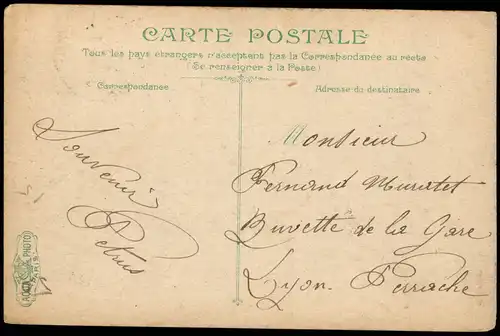 CARTE POSTALE
Tous les pays étrangers n'acceptent pas la Correspondance au recto
(Se renseigner à la Poste)
Correspondance
Adresse du destinataire
Souvenir
Petrus
Monsieur
Fernand Muratet
Buvette de la Gare
Lyon. Perrache
PHOTO
PARIS